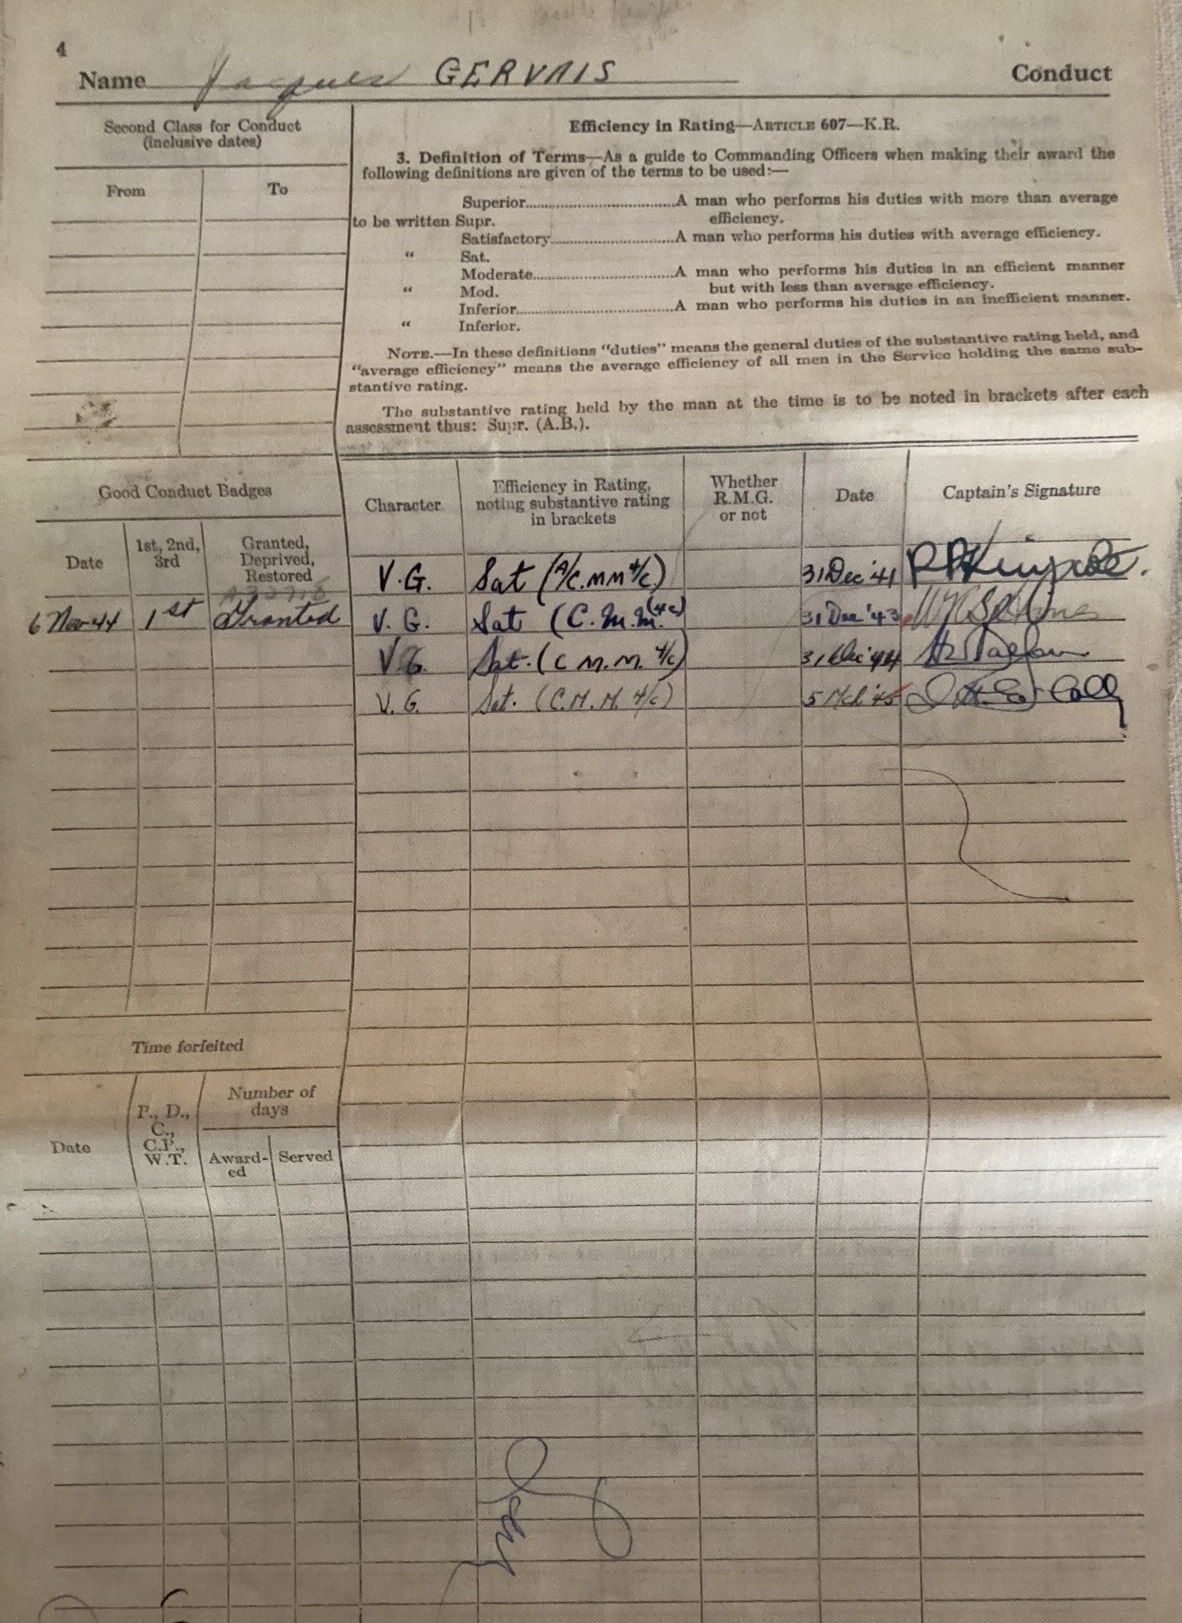 4
Name Jacques GERVAIS Conduct
Second Class for Conduct
(inclusive dates)
From To
Efficiency in Rating—ARTICLE 607—K.R.
3. Definition of Terms—As a guide to Commanding Officers when making their award the
following definitions are given of the terms to be used:—
Superior..............................A man who performs his duties with more than average
to be written Supr. efficiency.
Satisfactory.........................A man who performs his duties with average efficiency.
“ Sat.
Moderate.............................A man who performs his duties in an efficient manner
“ Mod. but with less than average efficiency.
Inferior................................A man who performs his duties in an inefficient manner.
“ Inferior.
NOTE.—In these definitions "duties" means the general duties of the substantive rating held, and
"average efficiency" means the average efficiency of all men in the Service holding the same sub-
stantive rating.
The substantive rating held by the man at the time is to be noted in brackets after each
assessment thus: Supr. (A.B.).
Good Conduct Badges
Date
1st, 2nd,
3rd
Granted,
Deprived,
Restored
6 Nov 44 1st Granted
Character
Efficiency in Rating,
noting substantive rating
in brackets
Whether
R.M.G.
or not
Date
Captain's Signature
V.G. Sat (A/C.MM 4/c) 31 Dec '41
V.G. Sat (C.M.M. (4c) 31 Dec '43
V.G. Sat. (C.M.M. 4/c) 31 Dec '44
V.G. Sat. (C.M.M. 4/c) 5 Mch '45
Time forfeited
Date
P., D.,
C.,
C.P.,
W.T.
Number of
days
Award-
ed
Served